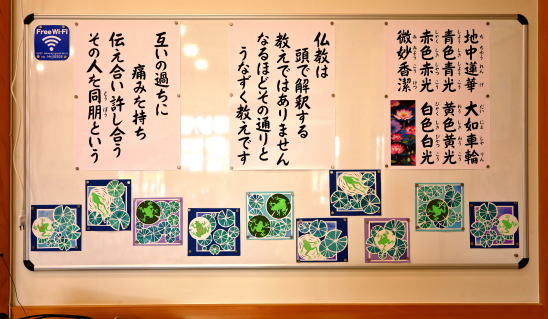 Free Wi-Fi
地中蓮華 大如車輪
青色青光 黄色黄光
赤色赤光 白色白光
微妙香潔
仏教は
頭で解釈する
教えではありません
なるほどその通りと
うなずく教えです
互いの過ちに
痛みを持ち
伝え合い許し合う
その人を同朋という